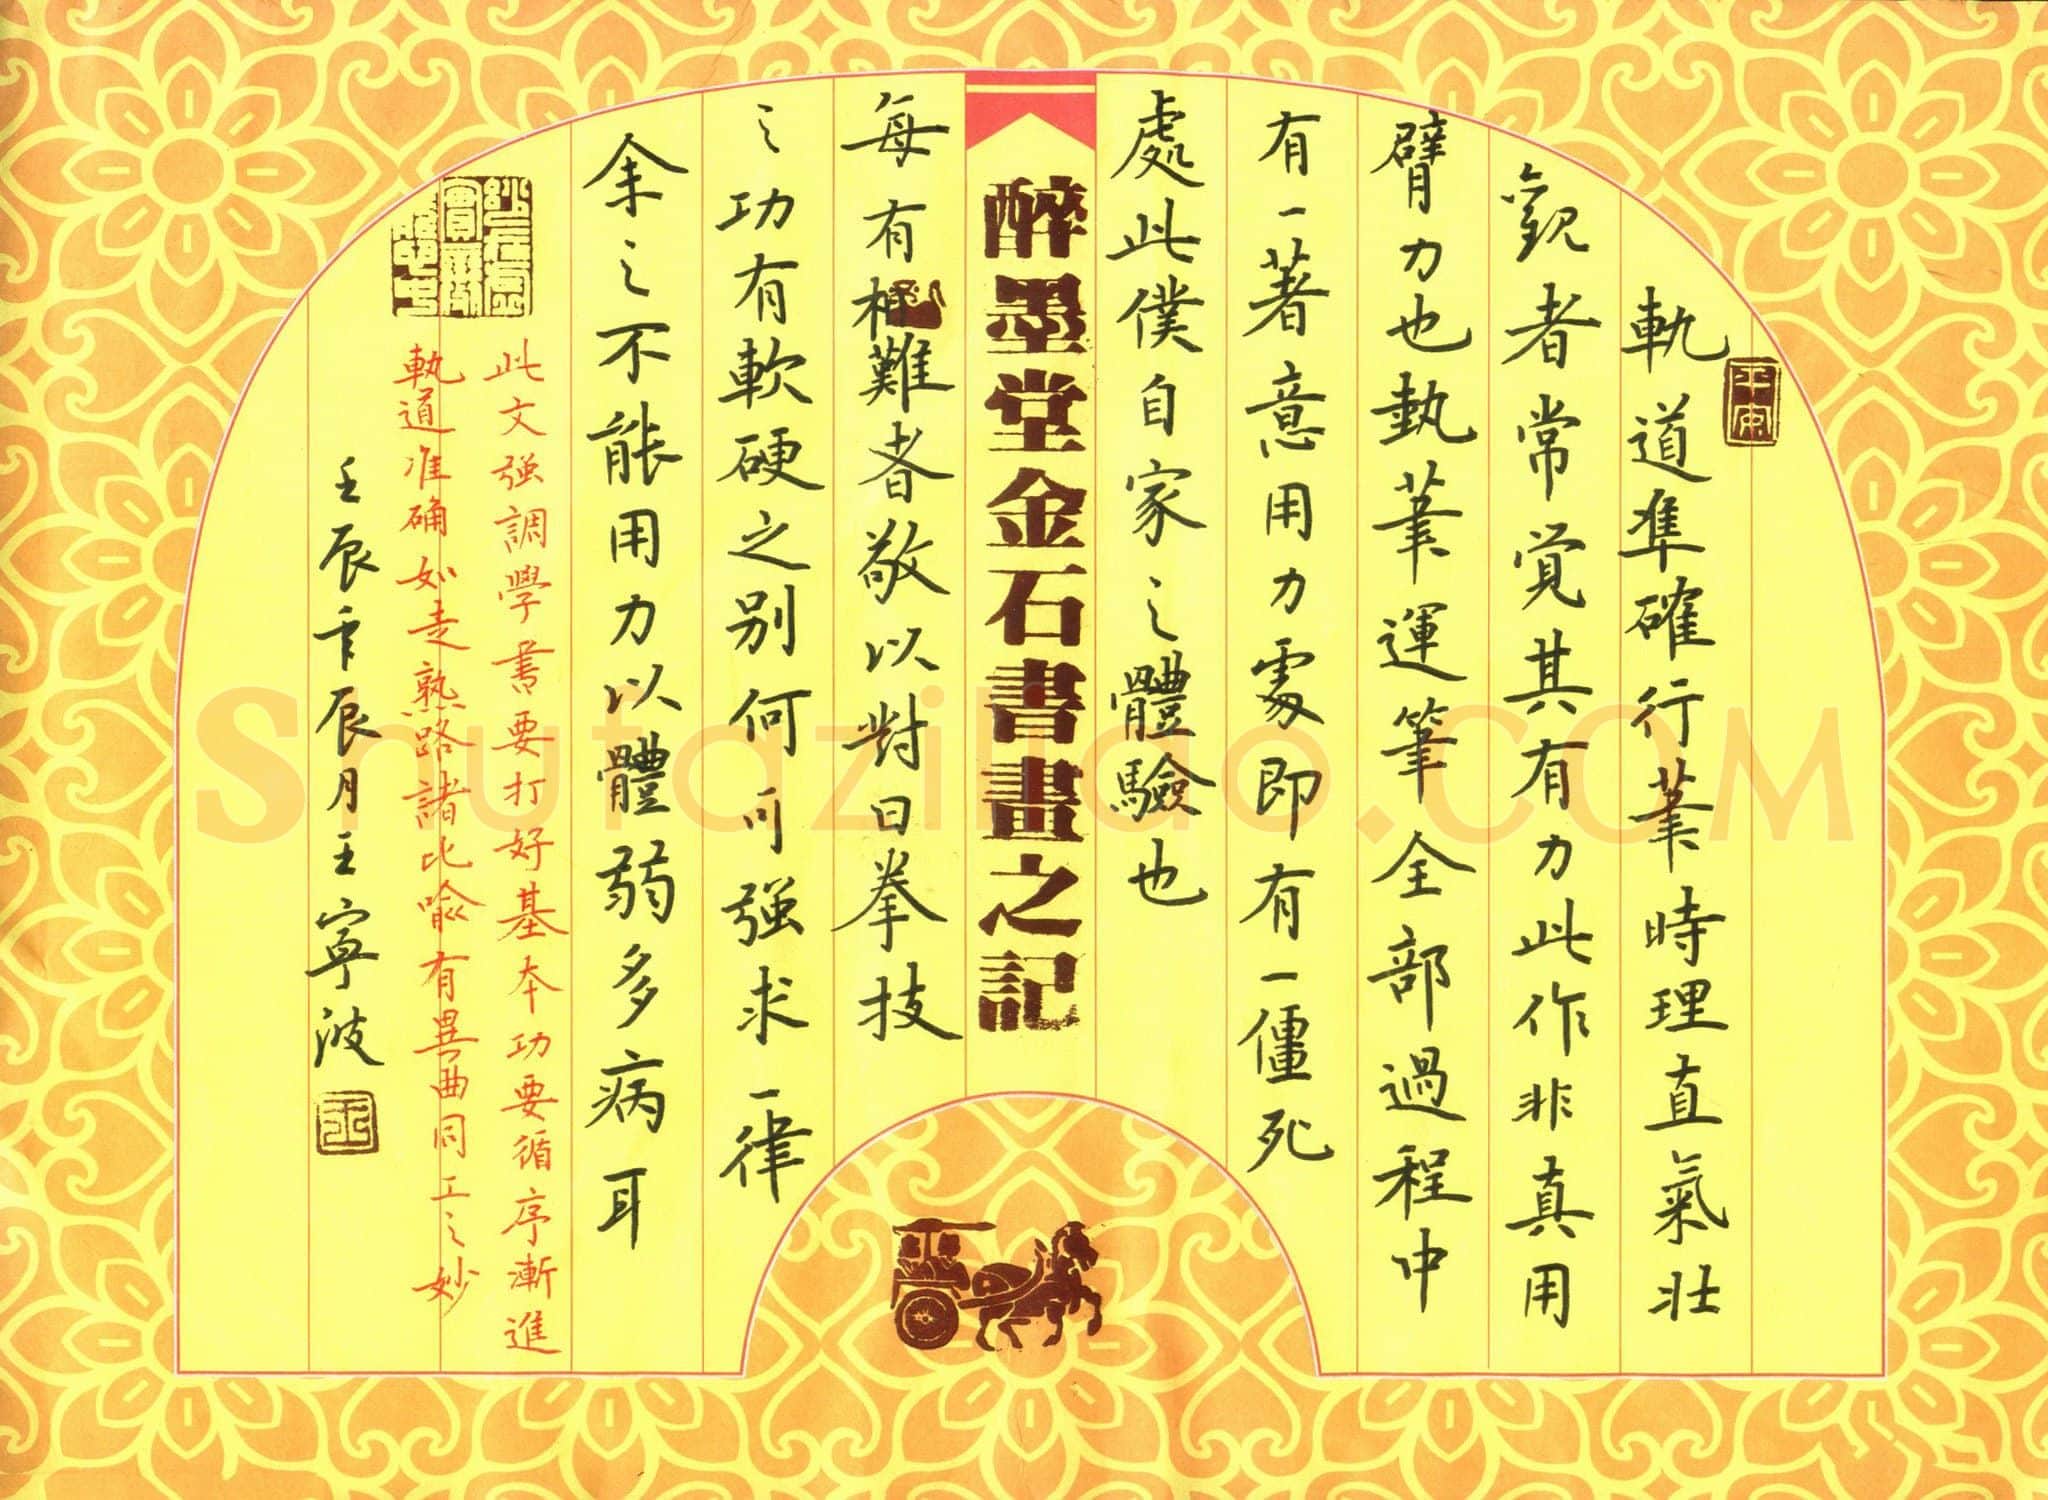 軌道準確行筆時理直氣壯
觀者常覺其有力此作非真用
臂力也執筆運筆全部過程中
有一著意用力處即有一僵死
處此僕自家之體驗也
醉墨堂金石書畫之記
每有相難者敬以對曰拳技
之功有軟硬之别何可強求一律
余之不能用力以體弱多病耳
此文強調學書要打好基本功要循序漸進
執道准确如走熟路諸比喻有異曲同工之妙
壬辰年辰月王寧波
Shufaziliao.COM